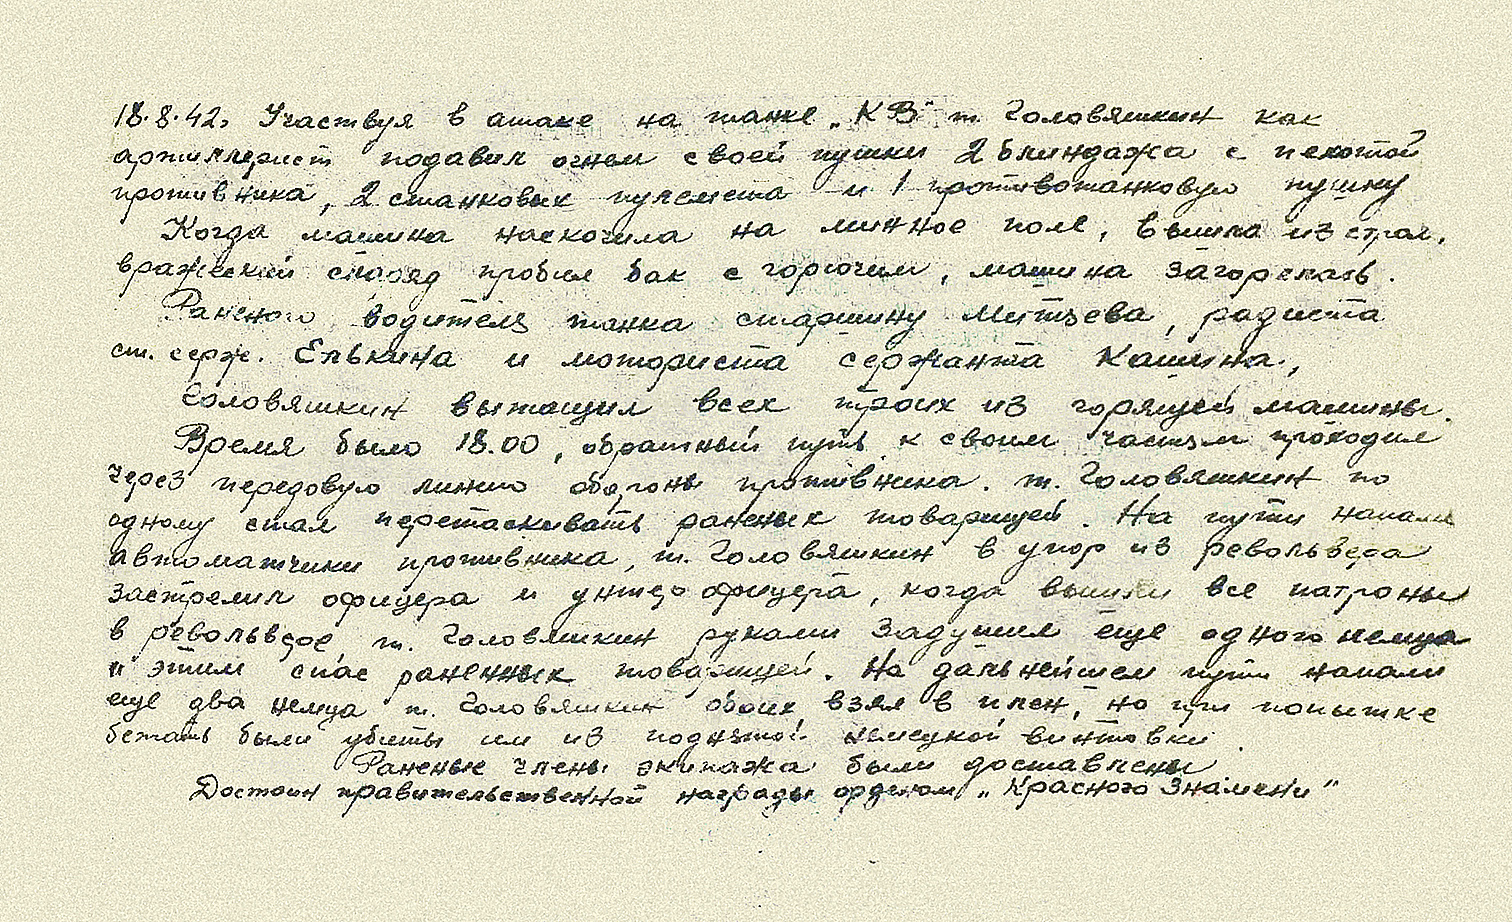 18.8.42г Участвуя в атаке на танке „КВ" т Головяшкин как
артиллерист подавил огнем своей пушки 2 блиндажа с пехотой
противника, 2 станковых пулемета и 1 противотанковую пушку
Когда машина наскочила на минное поле, вышла из строя,
вражеский снаряд пробил бак с горючим, машина загорелась.
Раненого водителя танка старшину Митяева, радиста
ст. серж. Елькина и моториста сержанта Кашина,
Головяшкин вытащил всех троих из горящей машины.
Время было 18.00, обратный путь к своим частям проходил
через передовую линию обороны противника. т. Головяшкин по
одному стал перетаскивать раненых товарищей. На пути напали
автоматчики противника, т. Головяшкин в упор из револьвера
застрелил офицера и унтер офицера, когда вышли все патроны
в револьвере т. Головяшкин руками задушил еще одного немца
и этим спас раненных товарищей. На дальнейшем пути напали
еще два немца т. Головяшкин обоих взял в плен, но при попытке
бежать были убиты им из поднятой немецкой винтовки.
Раненые члены экипажа были доставлены
Достоин правительственной награды орденом „Красного Знамени"